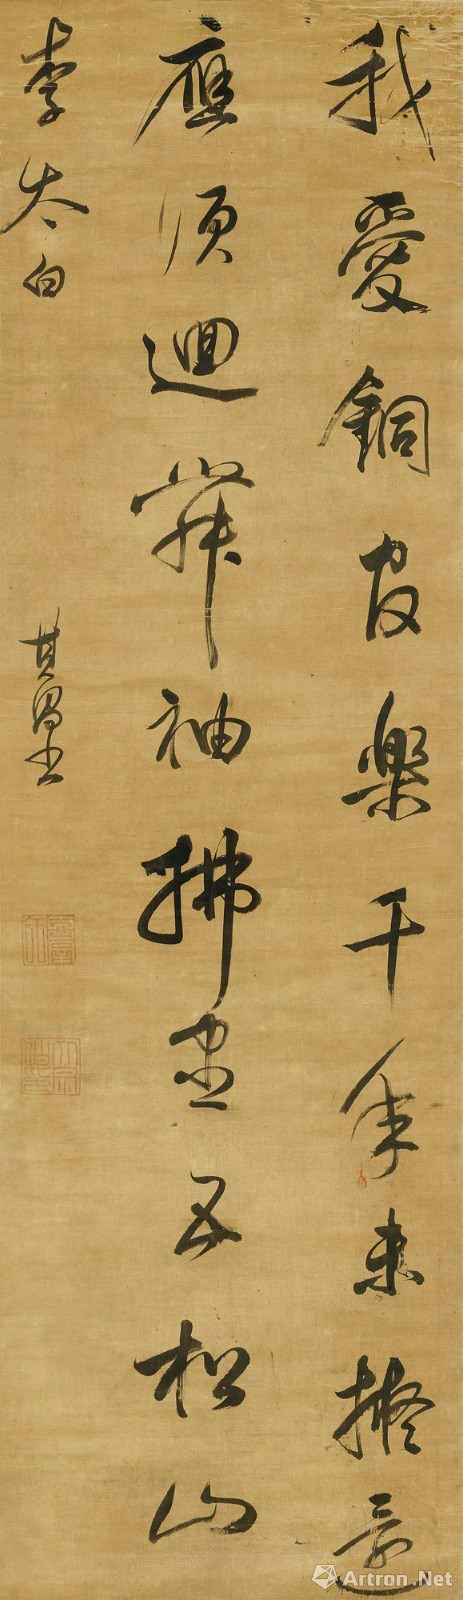 我愛銅官樂千年未擬還
應須迴舞袖拂盡五松山
李太白
其昌書
Artron.Net